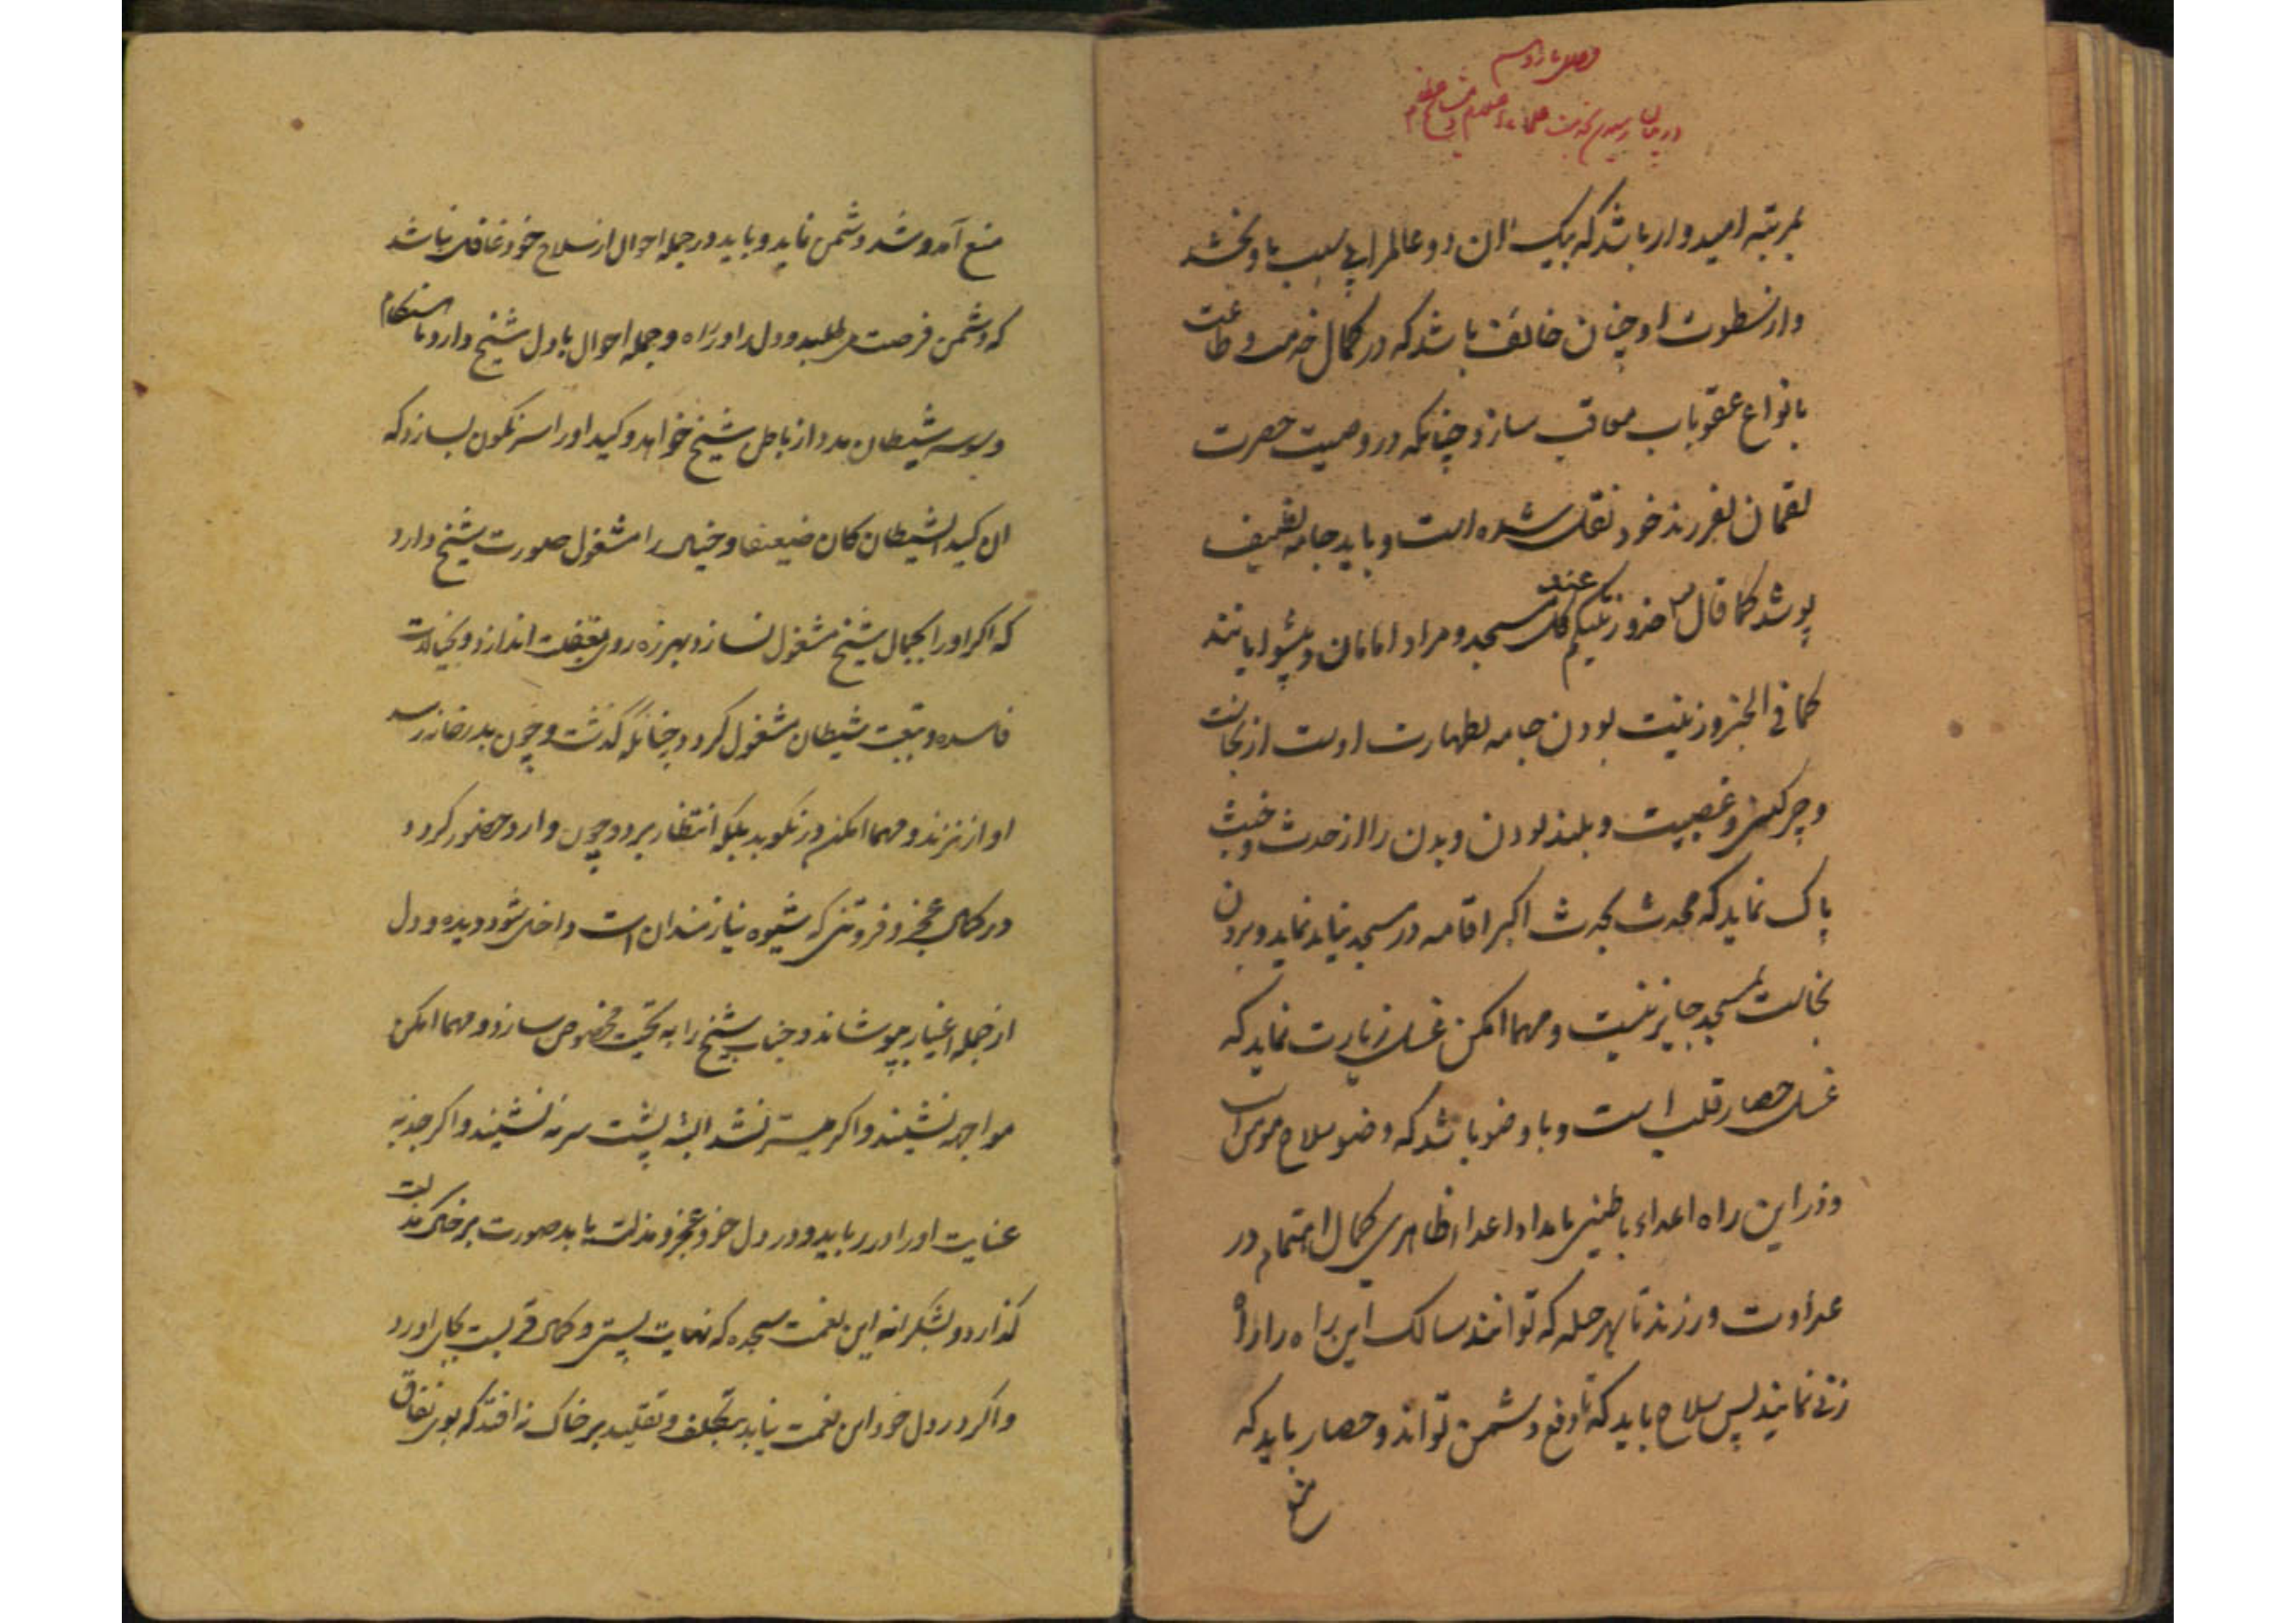 فصل یازدهم
در بیان رسیدن بخدمت علماء اعلام و مشایخ عظام
بمرتبه امیدوار باشد که بیک ان دو عالم را بی سبب باو بخشد
و از سطوت او چنان خائف باشد که در کمال خدمت و طاعت
بانواع عقوبات معاقب سازد چنانکه در وصیت حضرت
لقمان بفرزند خود نقل شده است و باید جامه نظیف
پوشد کما قال خذوا زینتکم عند کل مسجد و مراد امامان و پیشوایانند
کما فی الخبر و زینت بودن جامه بطهارت اوست از نجاست
و چرکینی و غصبیت و بلند بودن و بدن را از حدث و خبث
پاک نماید که محدث بحدث اکبر اقامه در مسجد نیاید نماید و بردن
نجاست بمسجد جایز نیست و مهما امکن غسل زیارت نماید که
غسل حصار قلب است و با وضو باشد که وضو سلاح مومن است
و در این راه اعداء باطنی بامداد اعداء ظاهری کمال اهتمام در
عداوت ورزند تا بهر حیله که توانند سالک این راه را راه
زنی نمایند پس سلاح باید که تا دفع دشمن تواند و حصار باید که
منع
منع آمد و شد دشمن نماید و باید در جمله احوال از سلاح خود غافل نباشد
که دشمن فرصت می طلبد و دل را در راه و جمله احوال با دل شیخ دارد تا هنگام
وسوسه شیطان مدد از باطن شیخ خواهد و کید او را سرنگون بسازد که
ان کید الشیطان کان ضعیفا و خیال را مشغول صورت شیخ دارد
که اگر او را بجمال شیخ مشغول نسازد بهرزه روی بغفلت اندازد و بخیالات
فاسده و تبعیت شیطان مشغول کردد چنانکه گذشت و چون بدر خانه رسد
اواز نزند و مهما امکن در نکوبد بلکه انتظار برد و چون وارد حضور کردد
در کمال عجز و فروتنی که شیوه نیازمندان است داخل شود و دیده و دل
از جمله اغیار بپوشاند و جناب شیخ را به تحیت مخصوص سازد و مهما امکن
مواجهه نشیند و اکر میسر نشد البته پشت سر نه نشیند و اکر جذبه
عنایت او را در رباید و در دل خود عجز و مذلت یابد صورت بر خاک مذلت
گذارد و بشکرانه این نعمت سجده که نهایت پستی و کمال قربست بجای اورد
و اکر در دل خود این نعمت نیابد بتکلف و تقلید بر خاک نه افتد که بوی نفاق